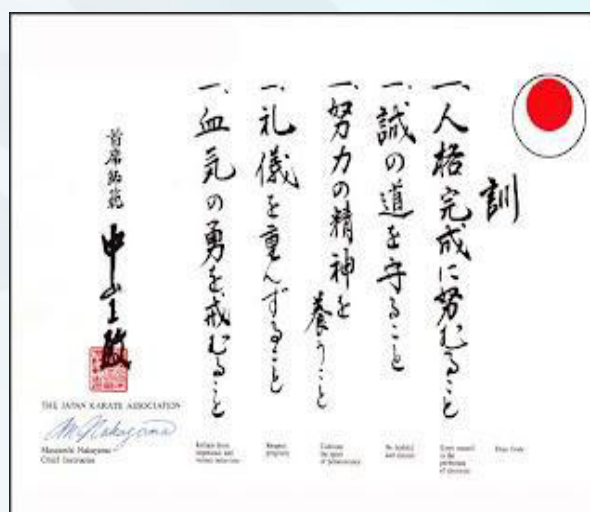 訓
一、人格完成に努むること
一、誠の道を守ること
一、努力の精神を
養うこと
一、礼儀を重んずること
一、血気の勇を戒むること
首席師範
中山正敏
THE JAPAN KARATE ASSOCIATION
M. Nakayama
Masatoshi Nakayama
Chief Instructor
Refrain from
impetuous and
violent behaviour
Respect
propriety
Cultivate
the spirit
of perseverance
Be faithful
and sincere
perfection
of character
Dojo Code